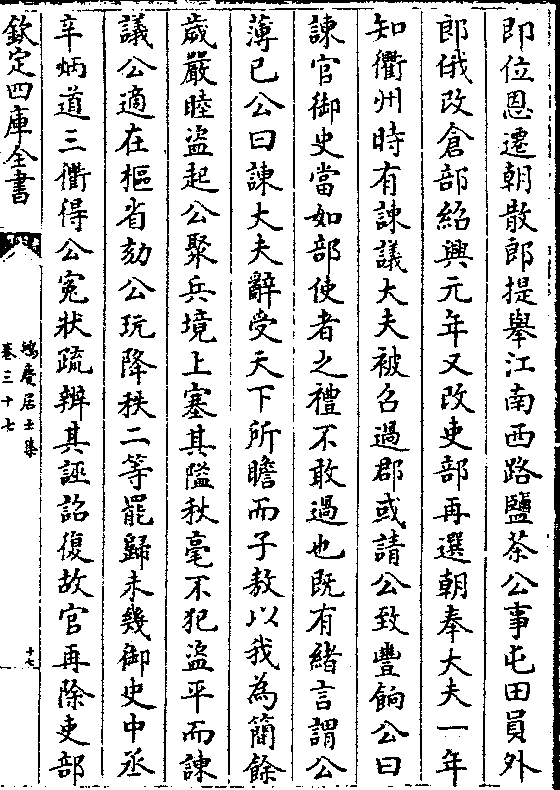 即位恩遷朝散郎提舉江南西路鹽茶公事屯田員外
郎俄改倉部紹興元年又改吏部再選朝奉大夫一年
知衢州時有諫議大夫被召過郡或請公致豐餉公曰
諫官御史當如部使者之禮不敢過也既有緒言謂公
薄已公曰諫大夫辭受天下所瞻而子敖以我為簡餘
歲嚴睦盜起公聚兵境上塞其隘秋毫不犯盜平而諫
議公適在樞省劾公玩降秩二等罷歸未幾御史中丞
辛炳道三衢得公冤狀疏辨其誣詔復故官再除吏部
欽定四庫全書
鴻慶居士集
卷三十七
十七